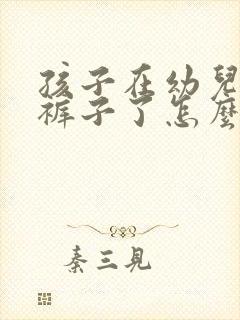 孩子在幼兒
裤子了怎麼
秦三見